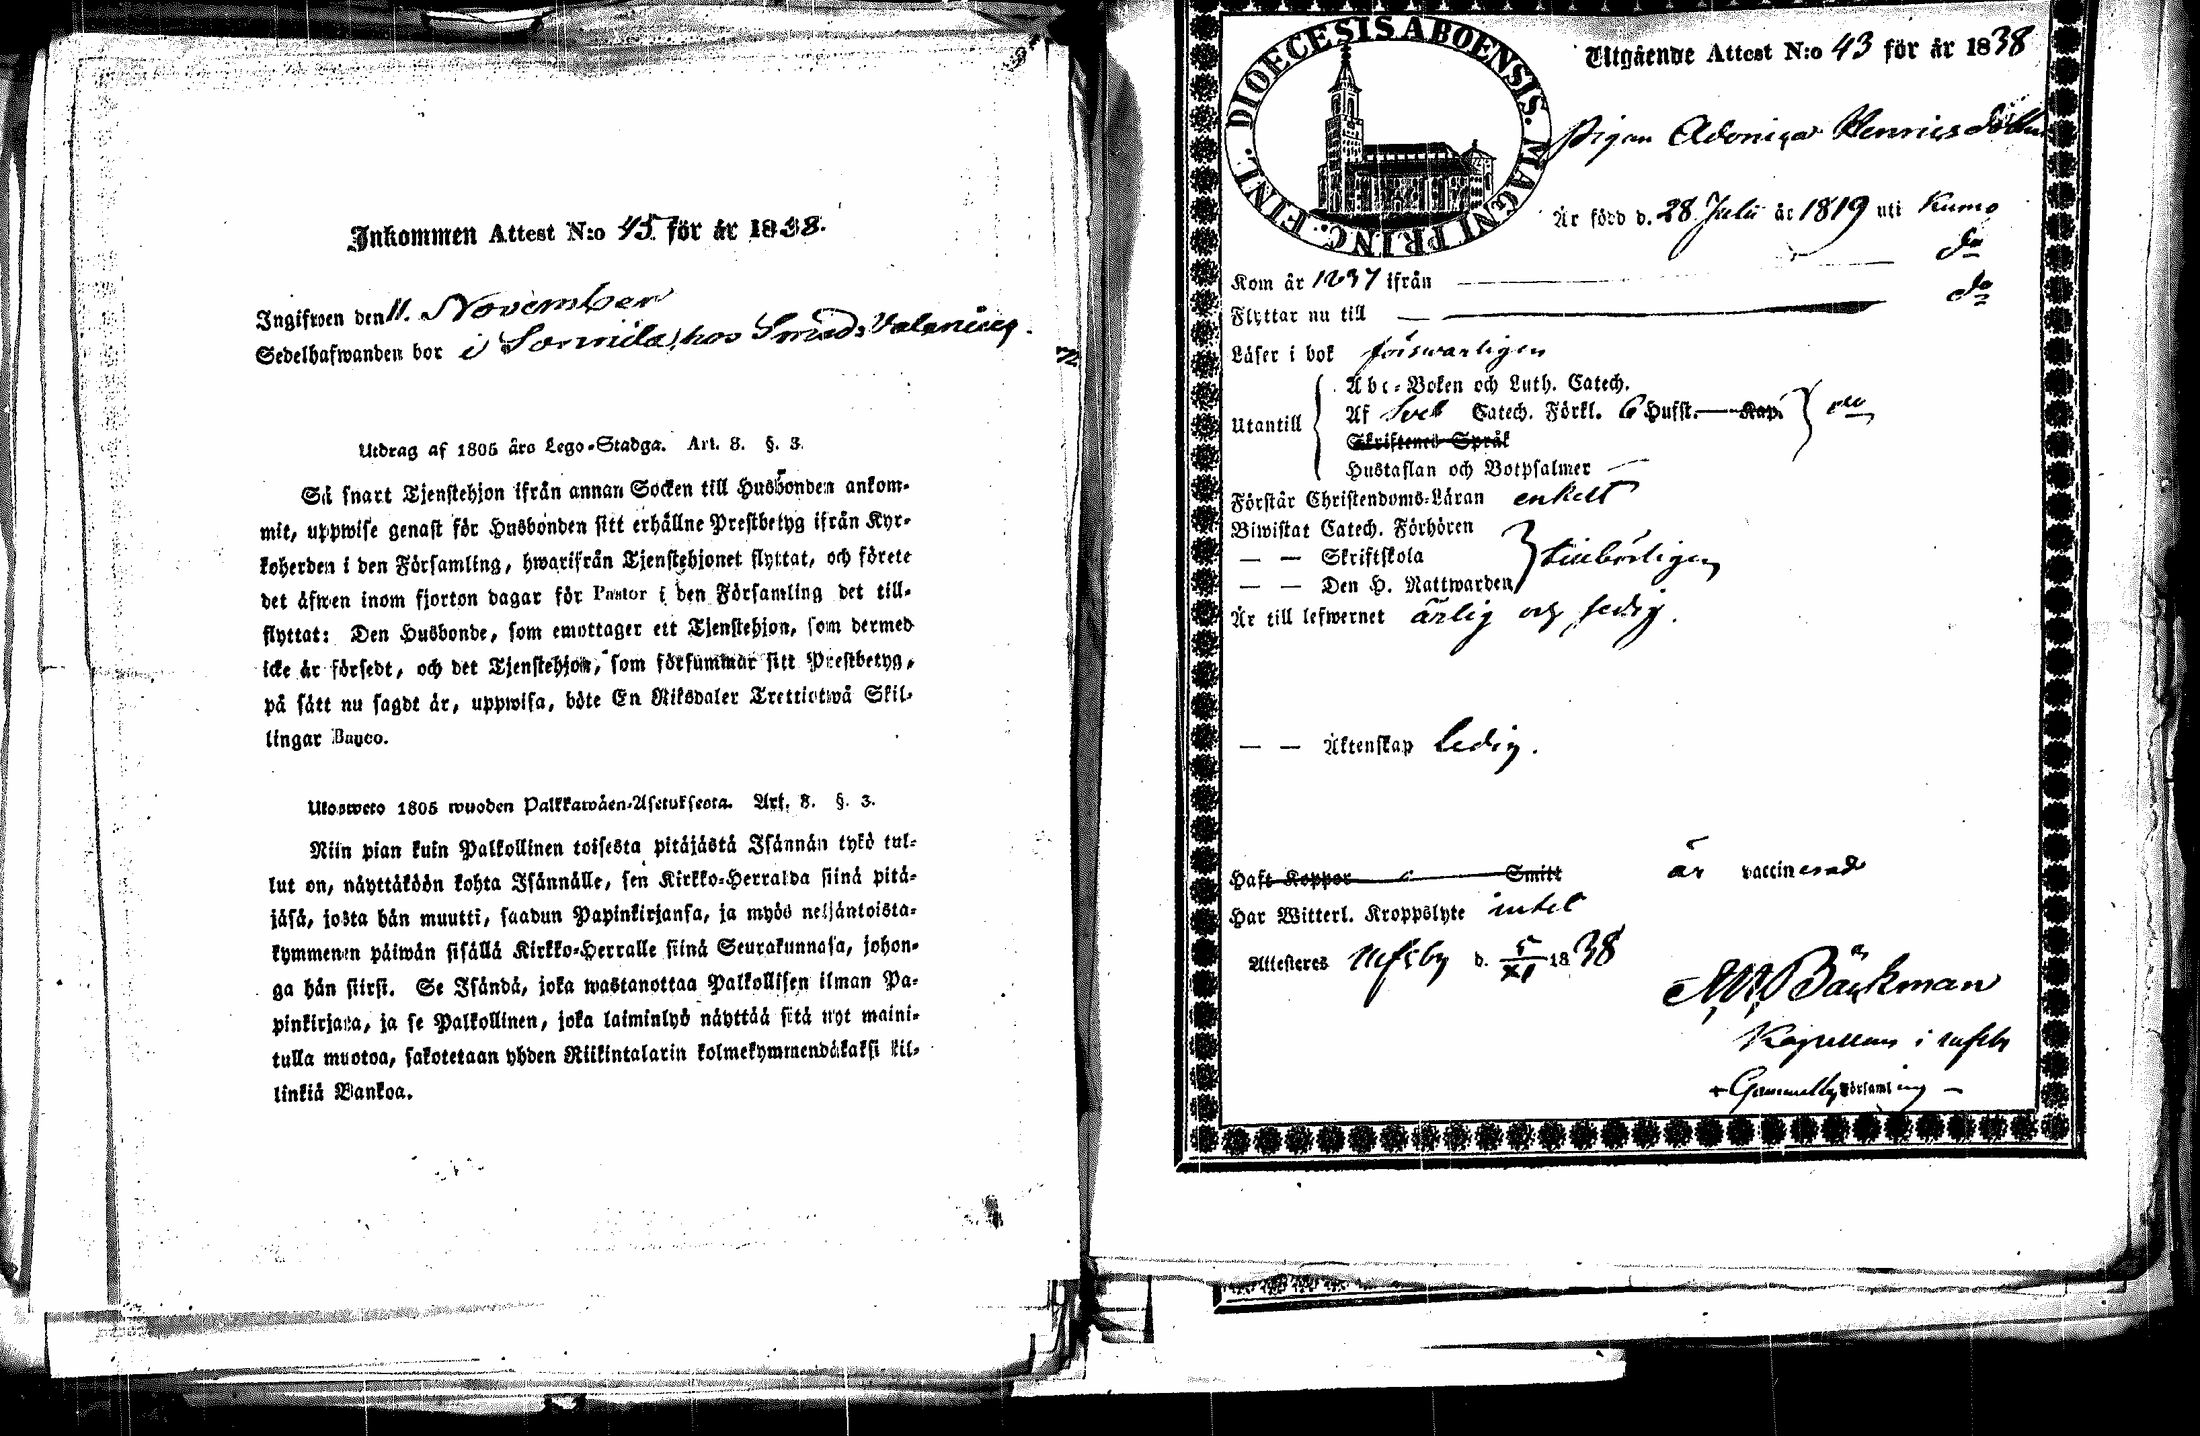 Inkommen Attest N:o 45 för år 1838.
Ingifwen den 11. November
Sedelhafwanden bor i Sonnila, hos Smed
Utdrag af 1805 års Lego-Stadga. Art. 8. §. 3.
Så snart Tjenstehjon ifrån annan Socken till Husbonden ankom-
mit, uppwise genast för Husbonden sitt erhållne Prestbetyg ifrån Kyr-
koherden i den Församling, hwarifrån Tjenstehjonet flyttat, och förete
det äfwen inom fjorton dagar för Pastor i den Församling det till-
flyttat: Den Husbonde, som emottager ett Tjenstehjon, som dermed
icke är försedt, och det Tjenstehjon, som försummar sitt Prestbetyg,
på sätt nu sagdt är, uppwisa, böte En Riksdaler Trettiotwå Skil-
lingar Banco.
Ulosweto 1805 wuoden Palkkawäen-Asetuksesta. Art. 8. §. 3.
Niin pian kuin Palkollinen toisesta pitäjästä Isännän tykö tul-
lut on, näyttäköön kohta Isännälle, sen Kirkko-Herralda siinä pitä-
jäsä, josta hän muutti, saadun Papinkirjansa, ja myös neljäntoista-
kymmenen päiwän sisällä Kirkko-Herralle siinä Seurakunnasa, johon-
ga hän siirsi. Se Isändä, joka wastanottaa Palkollisen ilman Pa-
pinkirjata, ja se Palkollinen, joka laiminlyö näyttää sitä nyt maini-
tulla muotoa, sakotetaan yhden Riikintalarin kolmekymmendäkaksi kil-
linkiä Bankoa.
DIOECESIS ABOENSIS. MAGNI PRINC. FINL.
Utgående Attest N:o 43 för år 1838
Pigan Adoniga Henricsdotter
Är född d. 28 Julii år 1819 uti Kumo
Kom år 1837 ifrån do
Flyttar nu till do
Läser i bok försvarligen
Abc-Boken och Luth. Catech.
Utantill Af Sveb Catech. Förkl. 6 Hufst. Kap.
Skriftenes Språk
Hustaflan och Botpsalmer
Förstår Christendoms-Läran enkelt
Biwistat Catech. Förhören
— — Skriftskola tillbörligen
— — Den H. Nattwarden
Är till lefwernet ärlig och sedig.
— — Äktenskap ledig.
Haft Koppor Smitt är vaccinerad
Har Witterl. Kroppslyte intet
Attesteras Ulfsby d. 5/XI 1838
Bäckman
Kapellan i Ulfsby
Gammelby Församling